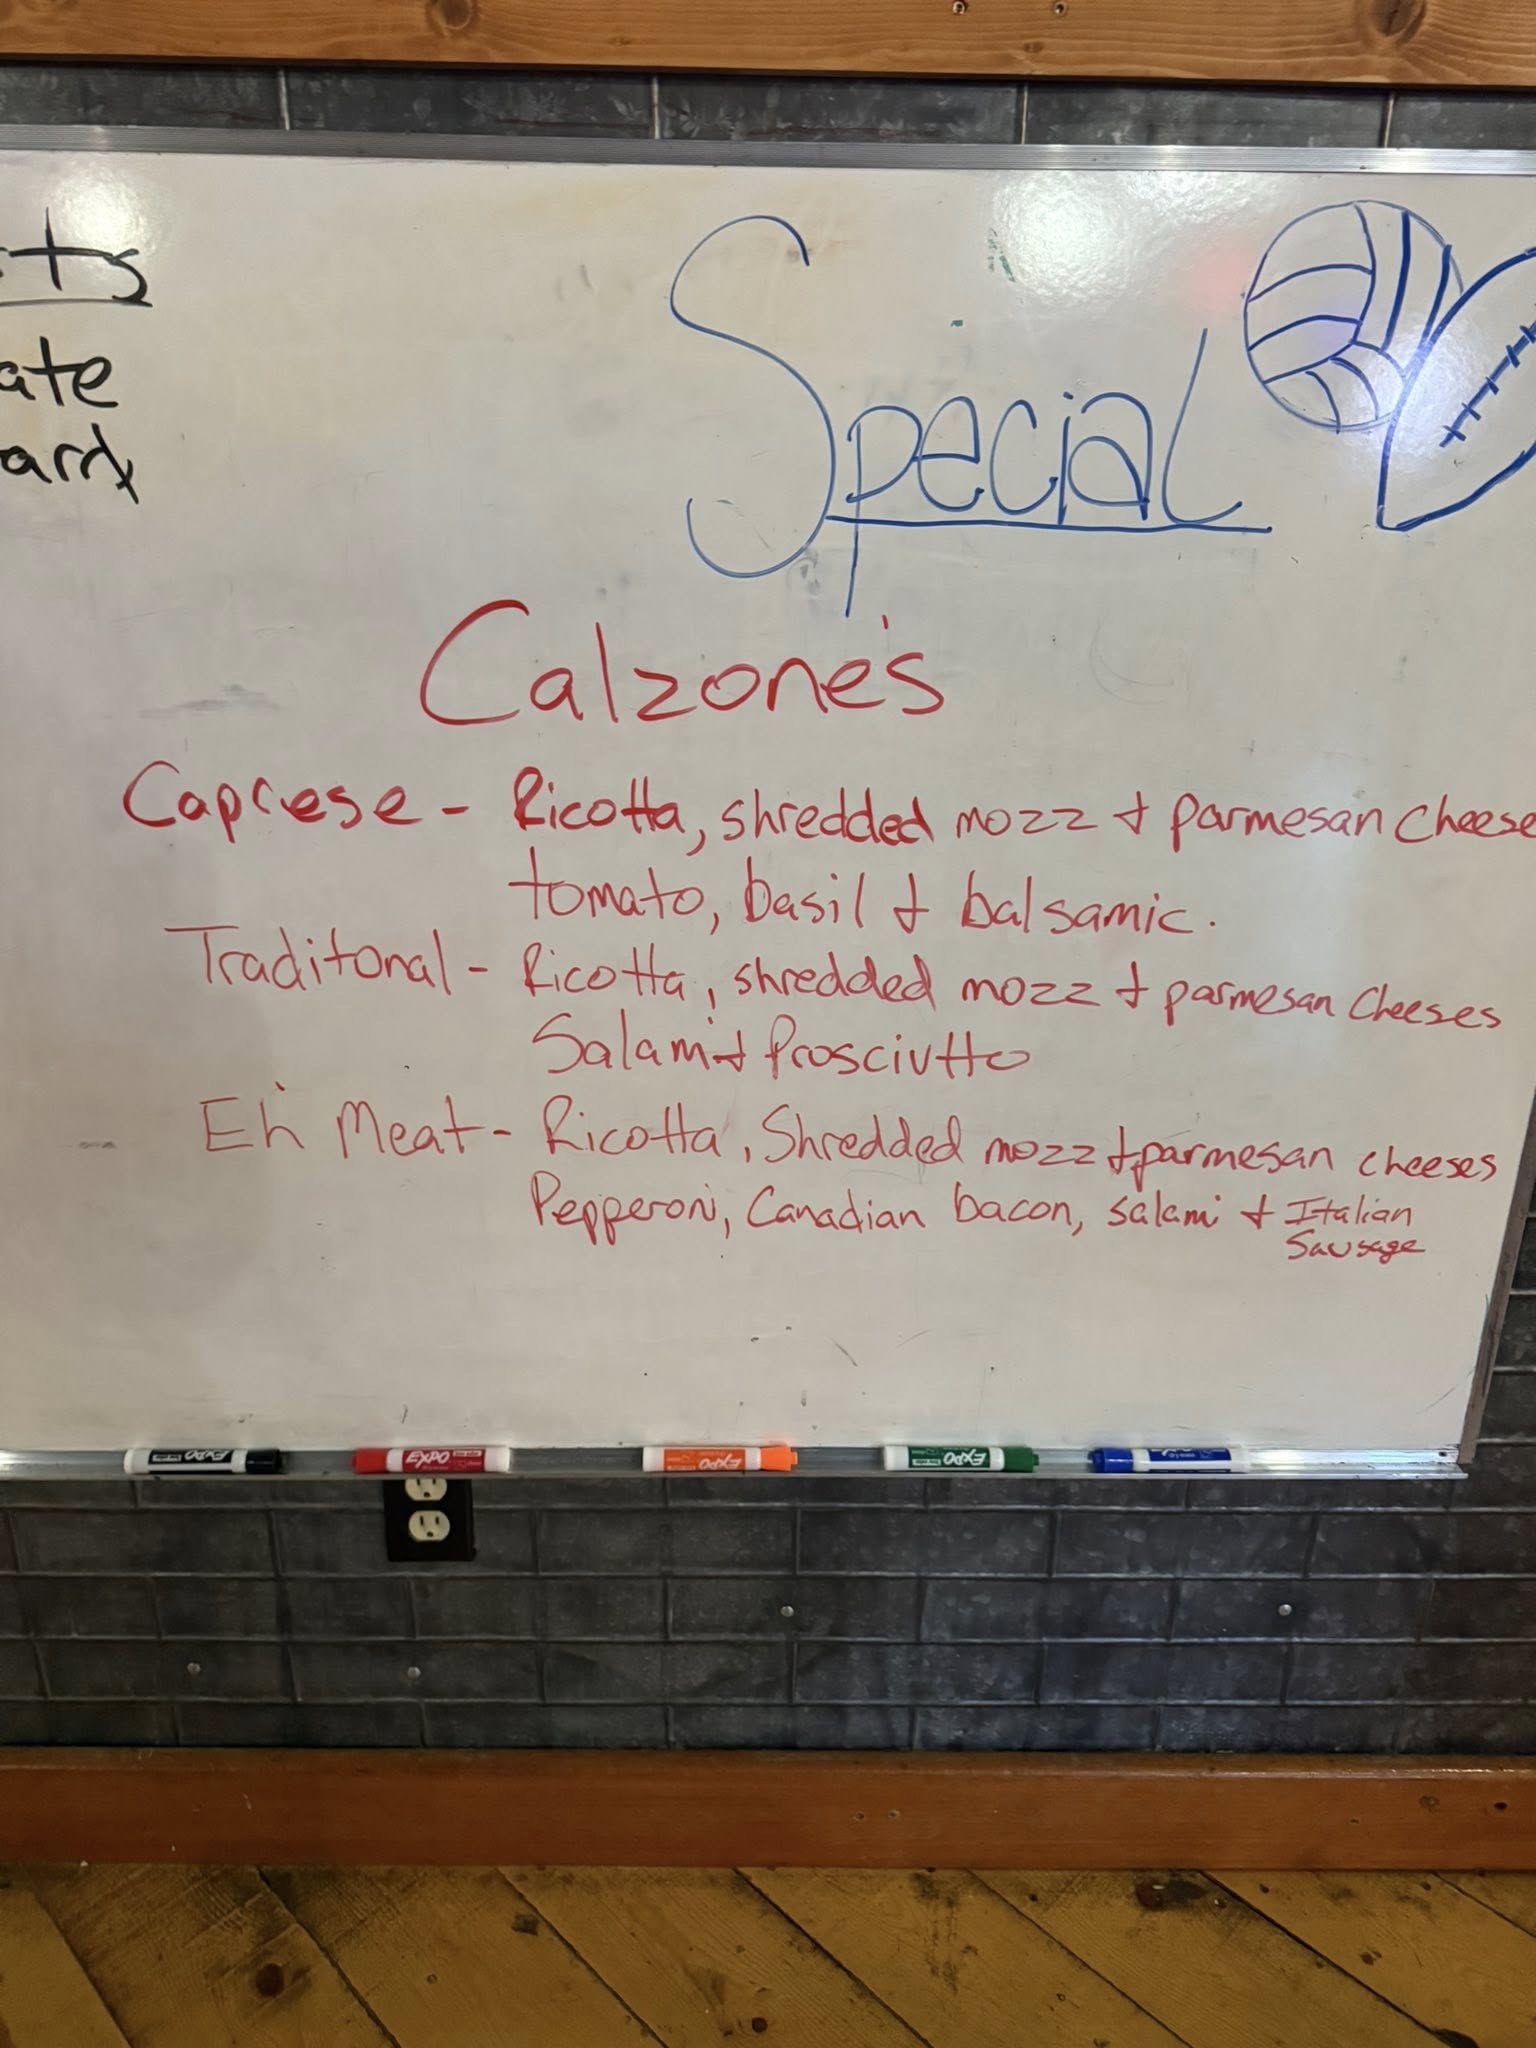 ate
Special
Calzone's
Capresese - Ricotta, shredded mozz + parmesan cheese
tomato, basil + balsamic.
Traditonal - Ricotta, shredded mozz + parmesan cheeses
Salami + Prosciutto
Eh Meat - Ricotta, Shredded mozz + parmesan cheeses
Pepperoni, Canadian bacon, salami + Italian
Sausage
EXPO
EXPO
EXPO
EXPO